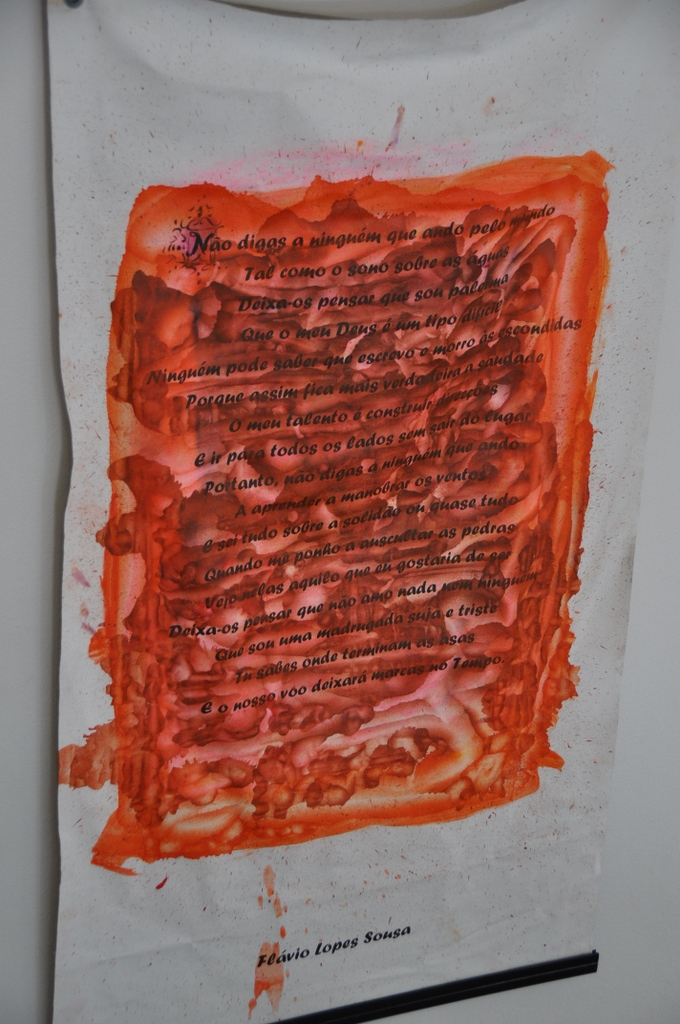 Não digas a ninguém que ando pelo mundo
Tal como o sono sobre as águas
Deixa-os pensar que sou palerma
Que o meu Deus é um tipo difícil
Ninguém pode saber que escrevo e morro às escondidas
Porque assim fica mais verdadeira a saudade
O meu talento é construir direcções
E ir para todos os lados sem sair do lugar
Portanto, não digas a ninguém que ando
A aprender a manobrar os ventos
E sei tudo sobre a solidão ou quase tudo
Quando me ponho a auscultar as pedras
Vejo nelas aquilo que eu gostaria de ser
Deixa-os pensar que não amo nada nem ninguém
Que sou uma madrugada suja e triste
Tu sabes onde terminam as asas
E o nosso voo deixará marcas no Tempo.
Flávio Lopes Sousa